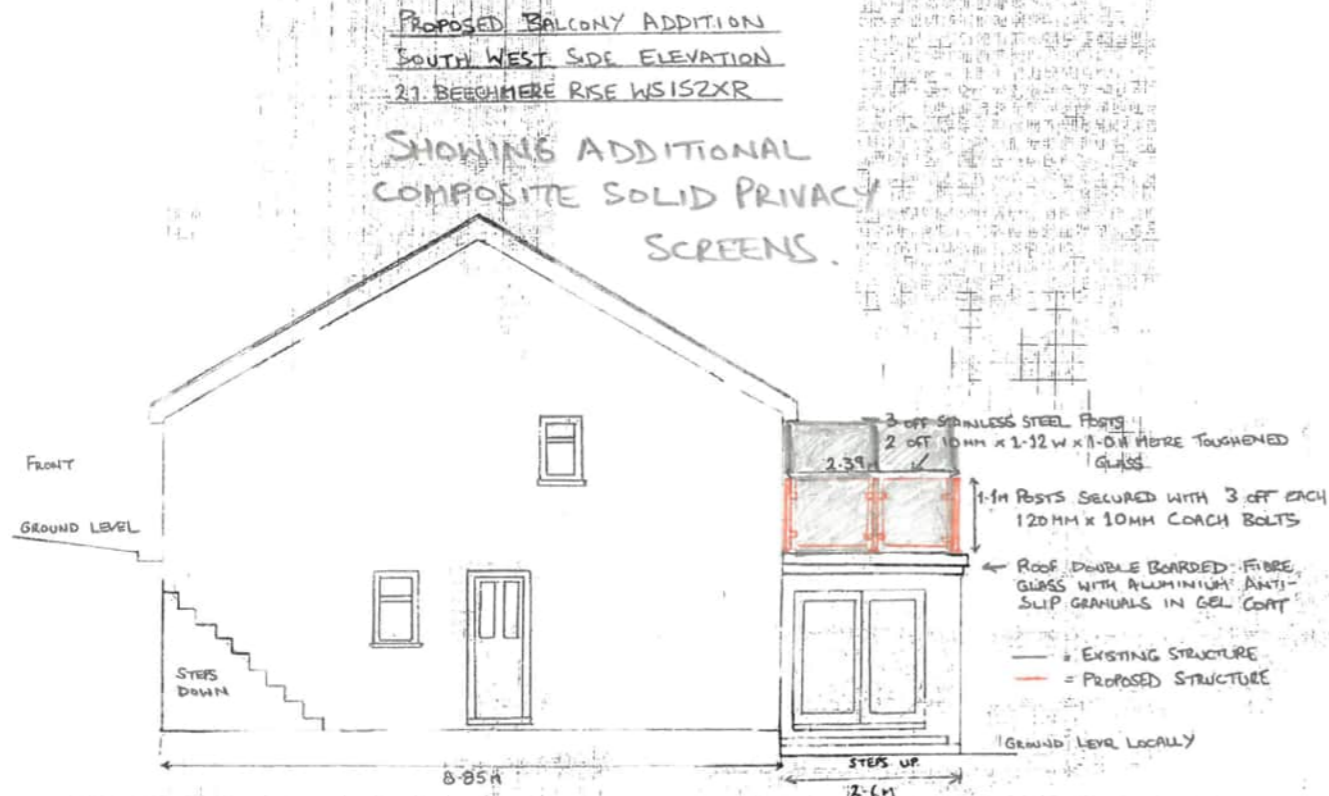 PROPOSED BALCONY ADDITION
SOUTH WEST SIDE ELEVATION
21. BEECHMERE RISE WS152XR
SHOWING ADDITIONAL
COMPOSITE SOLID PRIVACY
SCREENS.
3 OFF STAINLESS STEEL POSTS
2 OFF 10MM x 1-12 W x 1-0 H METRE TOUGHENED
GLASS
2.39M
FRONT
1-1M POSTS SECURED WITH 3 OFF EACH
120MM x 10MM COACH BOLTS
GROUND LEVEL
ROOF DOUBLE BOARDED FIBRE
GLASS WITH ALUMINIUM ANTI-
SLIP GRANUALS IN GEL COAT
= EXISTING STRUCTURE
= PROPOSED STRUCTURE
STEPS
DOWN
GROUND LEVR LOCALLY
STEPS UP
8-85M
2-6M